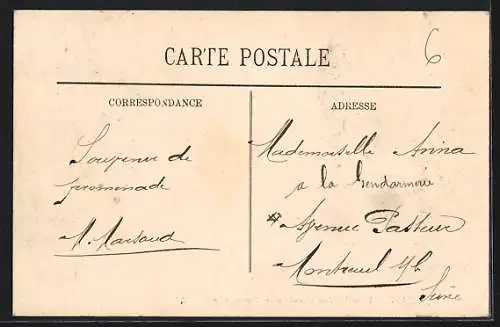 CARTE POSTALE
6
CORRESPONDANCE
Souvenir de
promenade
M. Marsaud
ADRESSE
Mademoiselle Anina
a la Gendarmerie
Avenue Pasteur
Montreuil s/b
Seine